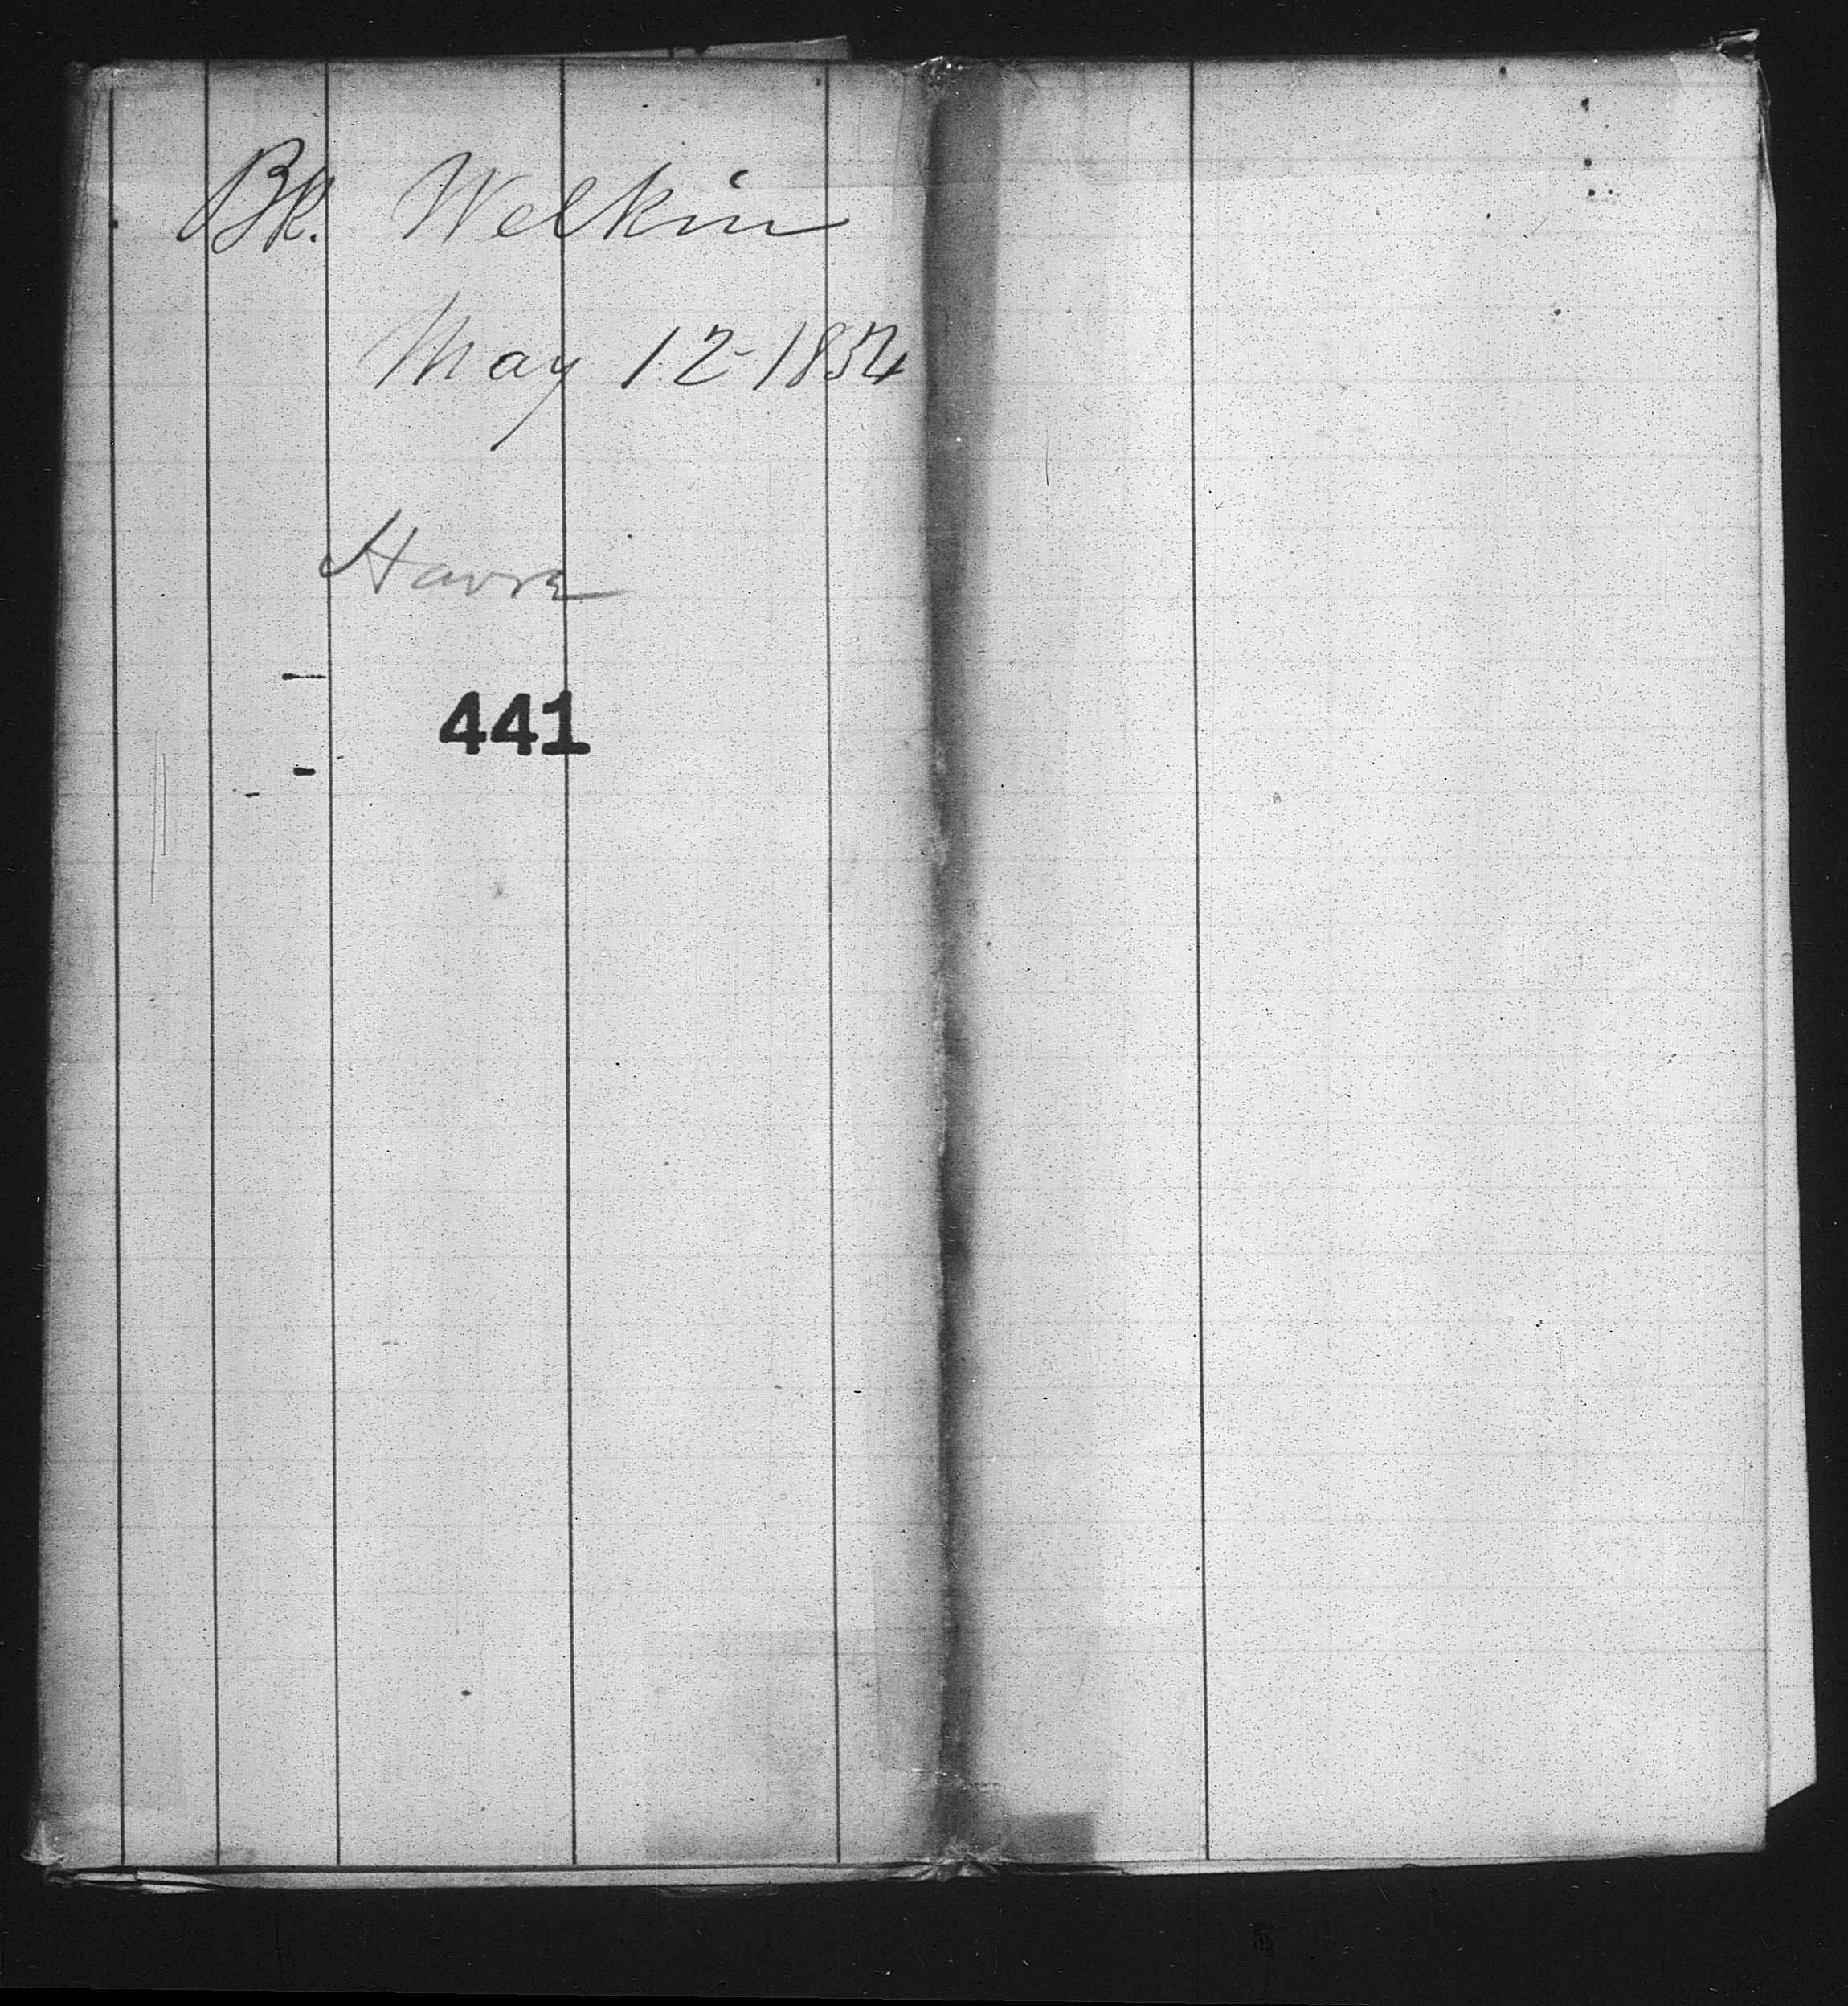 Bk. Welkin
May 12-1854
Havre
441